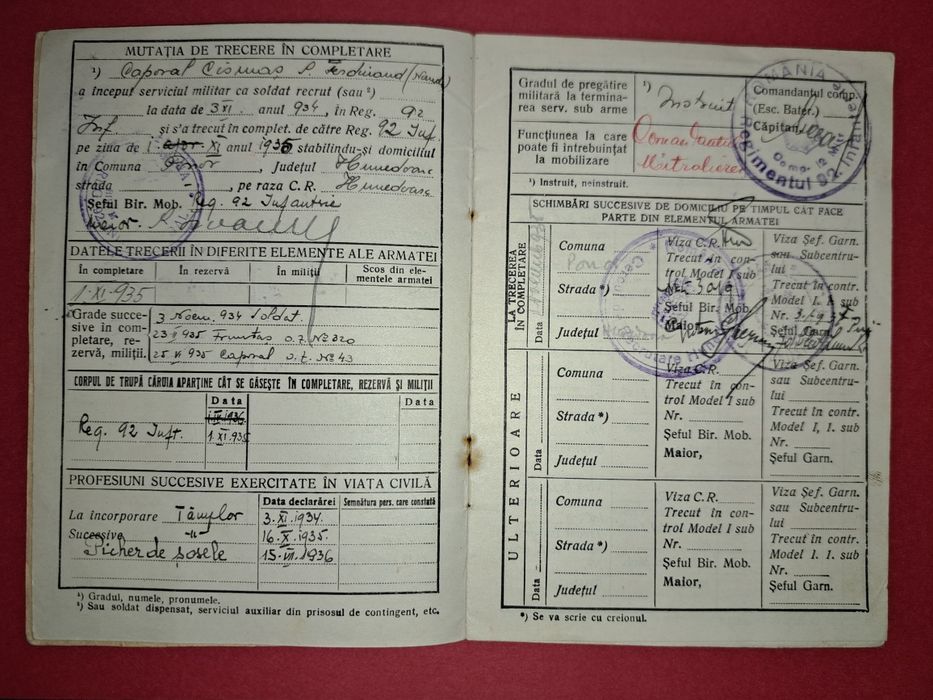 MUTAȚIA DE TRECERE ÎN COMPLETARE
¹) Caporal Cismaș P. Ferdinand
a început serviciul militar ca soldat recrut (sau ²)
la data de 3 XI. anul 934, în Reg. 92
Inf. și s'a trecut în complet. de către Reg. 92 Inf.
pe ziua de 1 XI anul 1935 stabilindu-și domiciliul
în Comuna Ponor, Județul Hunedoara
strada , pe raza C. R. Hunedoara
Șeful Bir. Mob. Reg. 92 Infanterie
Maior
DATELE TRECERII ÎN DIFERITE ELEMENTE ALE ARMATEI
În completare În rezervă În miliții Scos din elementele armatei
1·XI·935
Grade succesive în completare, rezervă, miliții.
3 Noem. 934 Soldat
23 935 Fruntaș o. z. № 320
25 VI 935 Caporal o. z. № 43
CORPUL DE TRUPĂ CĂRUIA APARȚINE CÂT SE GĂSEȘTE ÎN COMPLETARE, REZERVĂ ȘI MILIȚII
Data Data
Reg. 92 Inft. 1.XI.935
PROFESIUNI SUCCESIVE EXERCITATE ÎN VIAȚA CIVILĂ
Data declarărei Semnătura pers. care constată
La încorporare Tâmplar 3.XI.1934.
Succesive -"- 16.X.1935.
Picher de șosele 15.VII.1936
¹) Gradul, numele, pronumele.
²) Sau soldat dispensat, serviciul auxiliar din prisosul de contingent, etc.
Gradul de pregătire militară la terminarea serv. sub arme
¹) Instruit
Comandantul comp.
(Esc. Bater.)
Căpitan,
Funcțiunea la care poate fi întrebuințat la mobilizare
ROMÂNIA
Regimentul 92. Infanterie
¹) Instruit, neinstruit.
SCHIMBĂRI SUCCESIVE DE DOMICILIU PE TIMPUL CÂT FACE
PARTE DIN ELEMENTUL ARMATEI
LA TRECEREA ÎN COMPLETARE
Data
Comuna Ponor
Strada *)
Județul
Viza C. R.
Trecut în control Model I sub
№ 3019
Șeful Bir. Mob.
Maior,
Viza Șef. Garn.
sau Subcentrului
Trecut în contr.
Model I. 1. sub
Nr.
Șeful Garn.
ULTERIOARE
Data
Comuna
Strada *)
Județul
Viza C. R.
Trecut în control Model I sub
Nr.
Șeful Bir. Mob.
Maior,
Viza Șef. Garn.
sau Subcentrului
Trecut în contr.
Model I, 1. sub
Nr.
Șeful Garn.
Data
Comuna
Strada *)
Județul
Viza C. R.
Trecut în control Model I sub
Nr.
Șeful Bir. Mob.
Maior,
Viza Șef. Garn.
sau Subcentrului
Trecut în contr.
Model I. 1. sub
Nr.
Șeful Garn.
*) Se va scrie cu creionul.